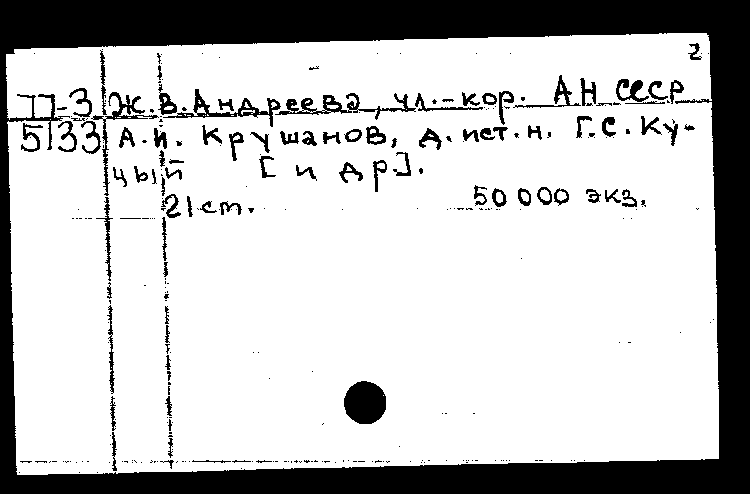 2
П-3 Ж.В.Андреева, чл.-кор. АН СССР
5133 А.И. Крушанов, д. ист. н. Г.С. Ку-
цый [и др.].
21 см. 50 000 экз.